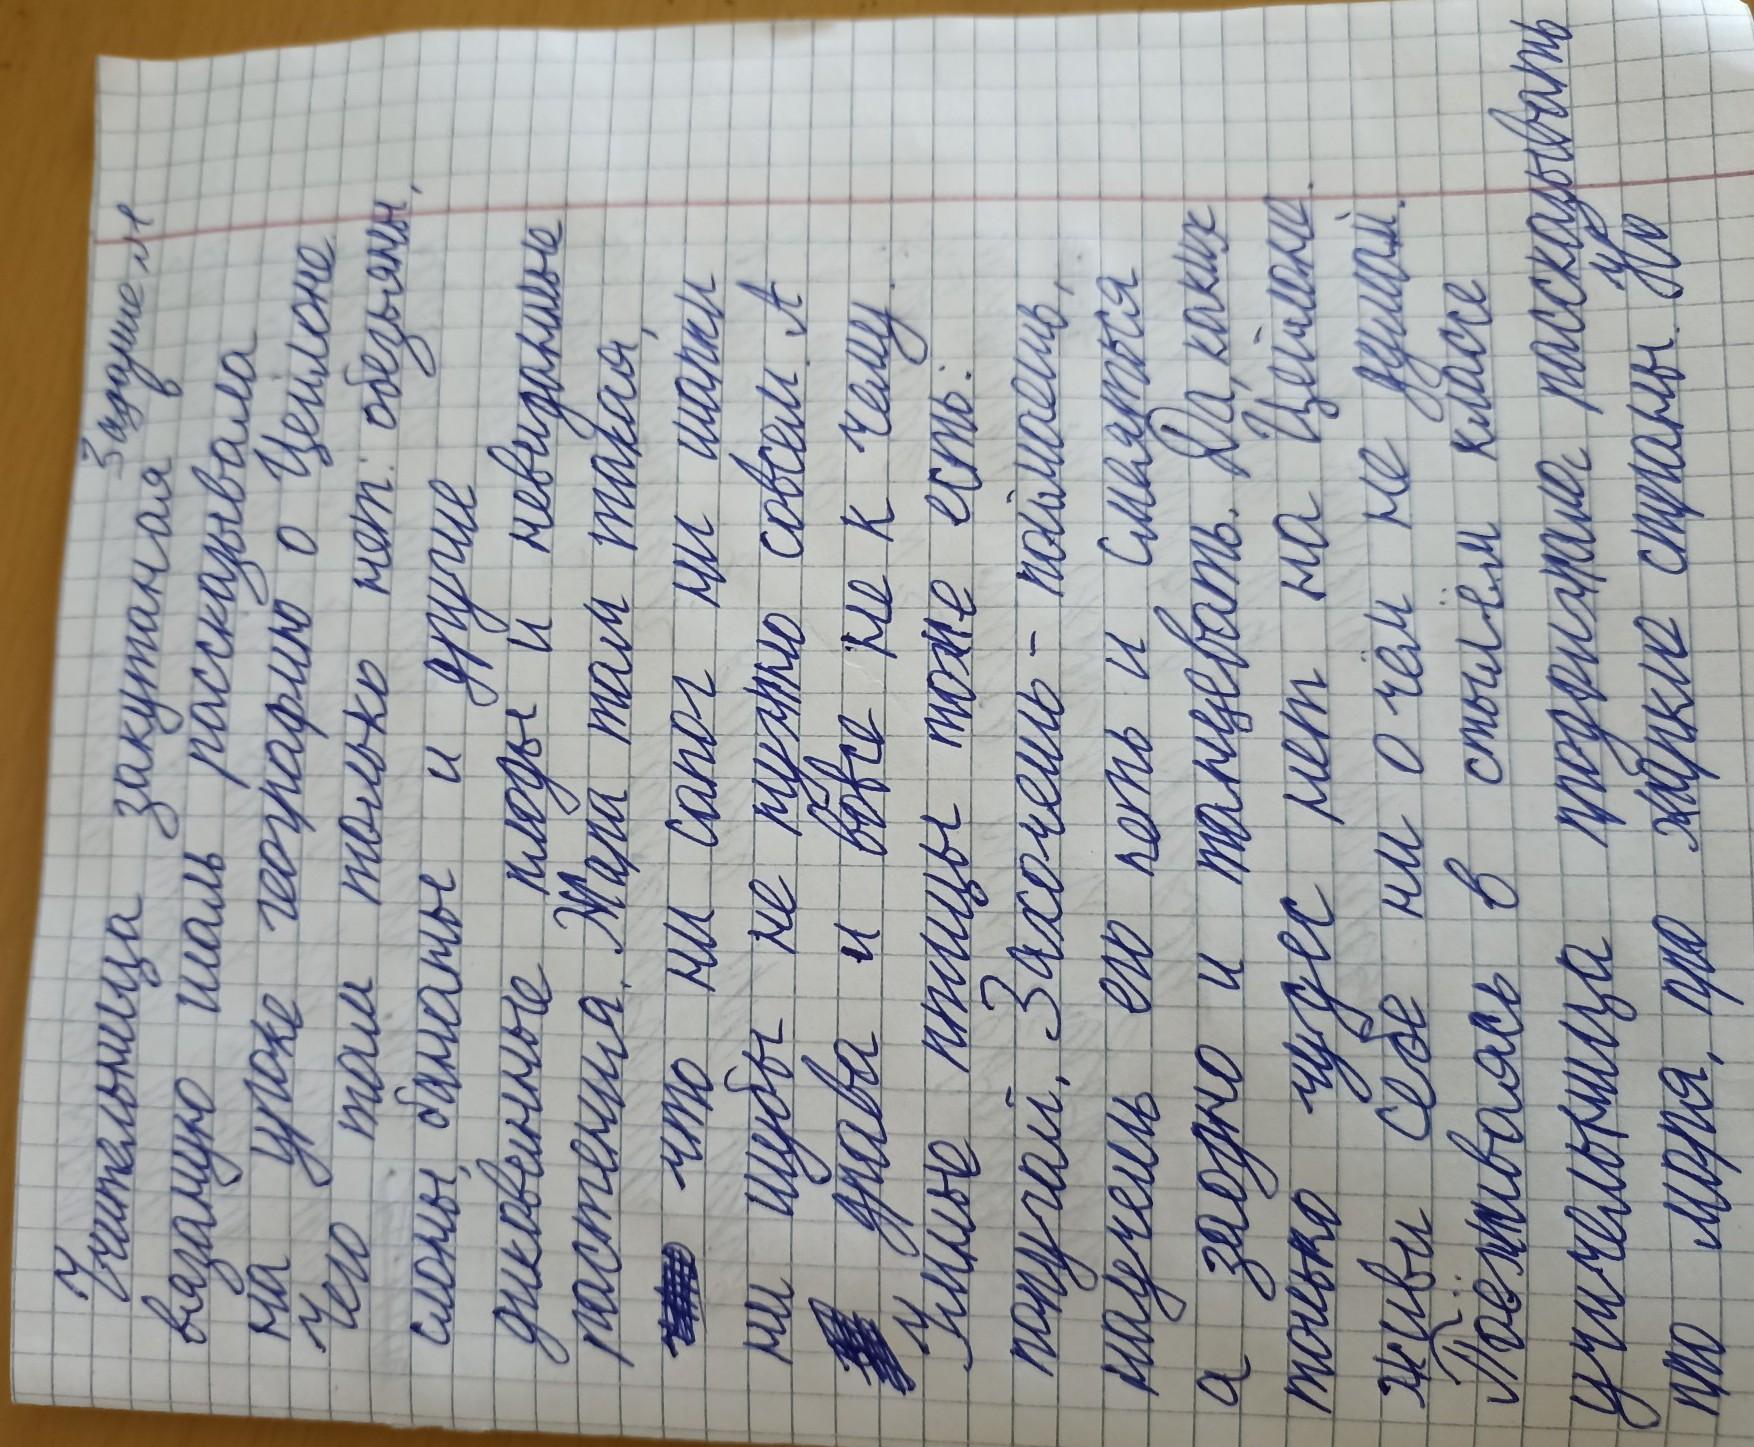 Задание 1
Учительница закутаная в
вязаную шаль рассказывала
на уроке географию о Цейлоне
Чего там только нет: обезьяны,
слоны, бананы и другие
диковенные плоды и невиданные
растения. Жара там такая,
что ни сапог ни шапки
ни шубы не нужно совсем. А
дрова и вовсе не к чему.
Умные птицы тоже есть:
попугаи. Захочешь - поймаешь,
научешь его петь и смеяться
а заодно и танцевать. Да, каких
только чудес нет на Цейлоне.
живи себе ни о чём не думай.
Поёживаясь в стылем классе
учительница продригшие рассказывать
про моря, про жаркие страны. Но